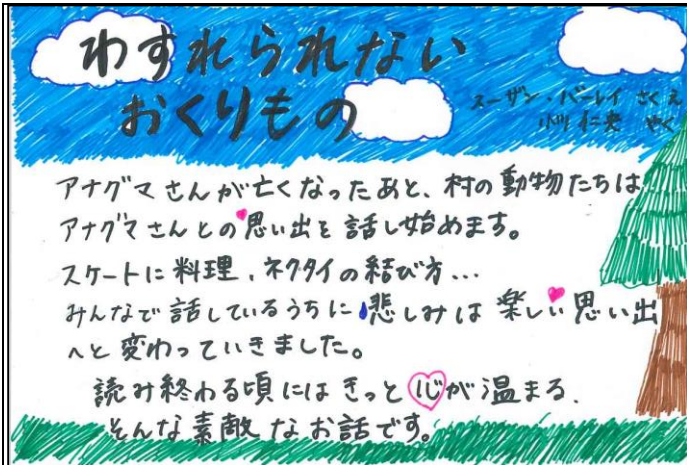 わすれられない
おくりもの
スーザン・バーレイ さく え
小川 仁央 やく
アナグマさんが亡くなったあと、村の動物たちは
アナグマさんとの思い出を話し始めます。
スケートに料理、ネクタイの結び方...
みんなで話しているうちに悲しみは楽しい思い出
へと変わっていきました。
読み終わる頃にはきっと心が温まる、
そんな素敵なお話です。